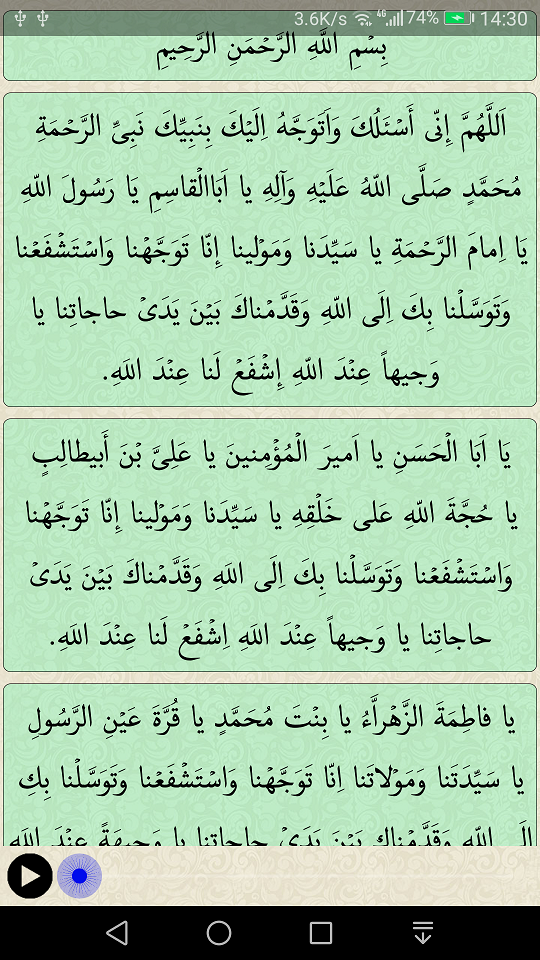 3.6K/s 4G 74% 14:30
بِسْمِ اللَّهِ الرَّحْمَنِ الرَّحِيمِ
اَللَّهُمَّ إِنّى أَسْئَلُكَ وَاَتَوَجَّهُ اِلَيْكَ بِنَبِيِّكَ نَبِىِّ الرَّحْمَةِ
مُحَمَّدٍ صَلَّى اللّهُ عَلَيْهِ وَآلِهِ يا اَبَاالْقاسِمِ يَا رَسُولَ اللّهِ
يَا اِمامَ الرَّحْمَةِ يا سَيِّدَنا وَمَوْلينا إِنّا تَوَجَّهْنا وَاسْتَشْفَعْنا
وَتَوَسَّلْنا بِكَ اِلَى اللّهِ وَقَدَّمْناكَ بَيْنَ يَدَىْ حاجاتِنا يا
وَجيهاً عِنْدَ اللّهِ إِشْفَعْ لَنا عِنْدَ اللَهِ.
يَا اَبَا الْحَسَنِ يا اَميرَ الْمُؤْمِنينَ يا عَلِىَّ بْنَ أَبيطالِبٍ
يا حُجَّةَ اللّهِ عَلى خَلْقِهِ يا سَيِّدَنا وَمَوْلينا إِنّا تَوَجَّهْنا
وَاسْتَشْفَعْنا وَتَوَسَّلْنا بِكَ اِلَى اللَهِ وَقَدَّمْناكَ بَيْنَ يَدَىْ
حاجاتِنا يا وَجيهاً عِنْدَ اللَهِ اِشْفَعْ لَنا عِنْدَ اللَهِ.
يا فاطِمَةَ الزَّهْراَّءُ يا بِنْتَ مُحَمَّدٍ يا قُرَّةَ عَيْنِ الرَّسُولِ
يا سَيِّدَتَنا وَمَوْلاتَنا اِنّا تَوَجَّهْنا وَاسْتَشْفَعْنا وَتَوَسَّلْنا بِكِ
اِلَى اللّهِ وَقَدَّمْناكِ بَيْنَ يَدَىْ حاجاتِنا يا وَجيهَةً عِنْدَ اللَهِ